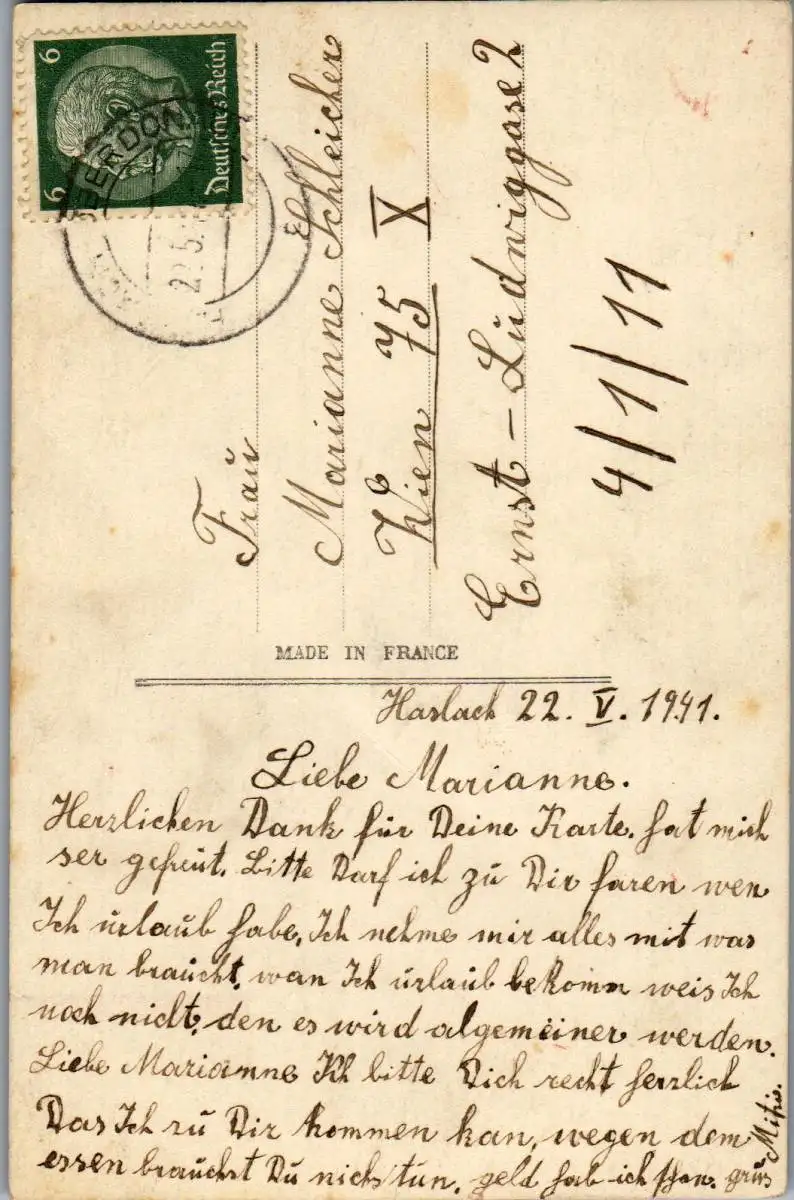 6 6
Deutsches Reich
OBERDON
22.5.
Frau
Marianne Schleicher
Wien 75 X
Ernst-Ludwiggase 2
4/1/11
MADE IN FRANCE
Haslach 22. V. 1941.
Liebe Marianne.
Herzlichen Dank für Deine Karte. hat mich
ser gefreut. Bitte Darf ich zu Dir faren wen
Ich urlaub habe, Ich nehme mir alles mit was
man braucht, wan Ich urlaub bekomm weis Ich
noch nicht, den es wird algemeiner werden.
Liebe Marianne Ich bitte Dich recht herzlich
Das Ich zu Dir kommen kan, wegen dem
essen brauchst Du nichs tun. geld hab ich schon. grüs